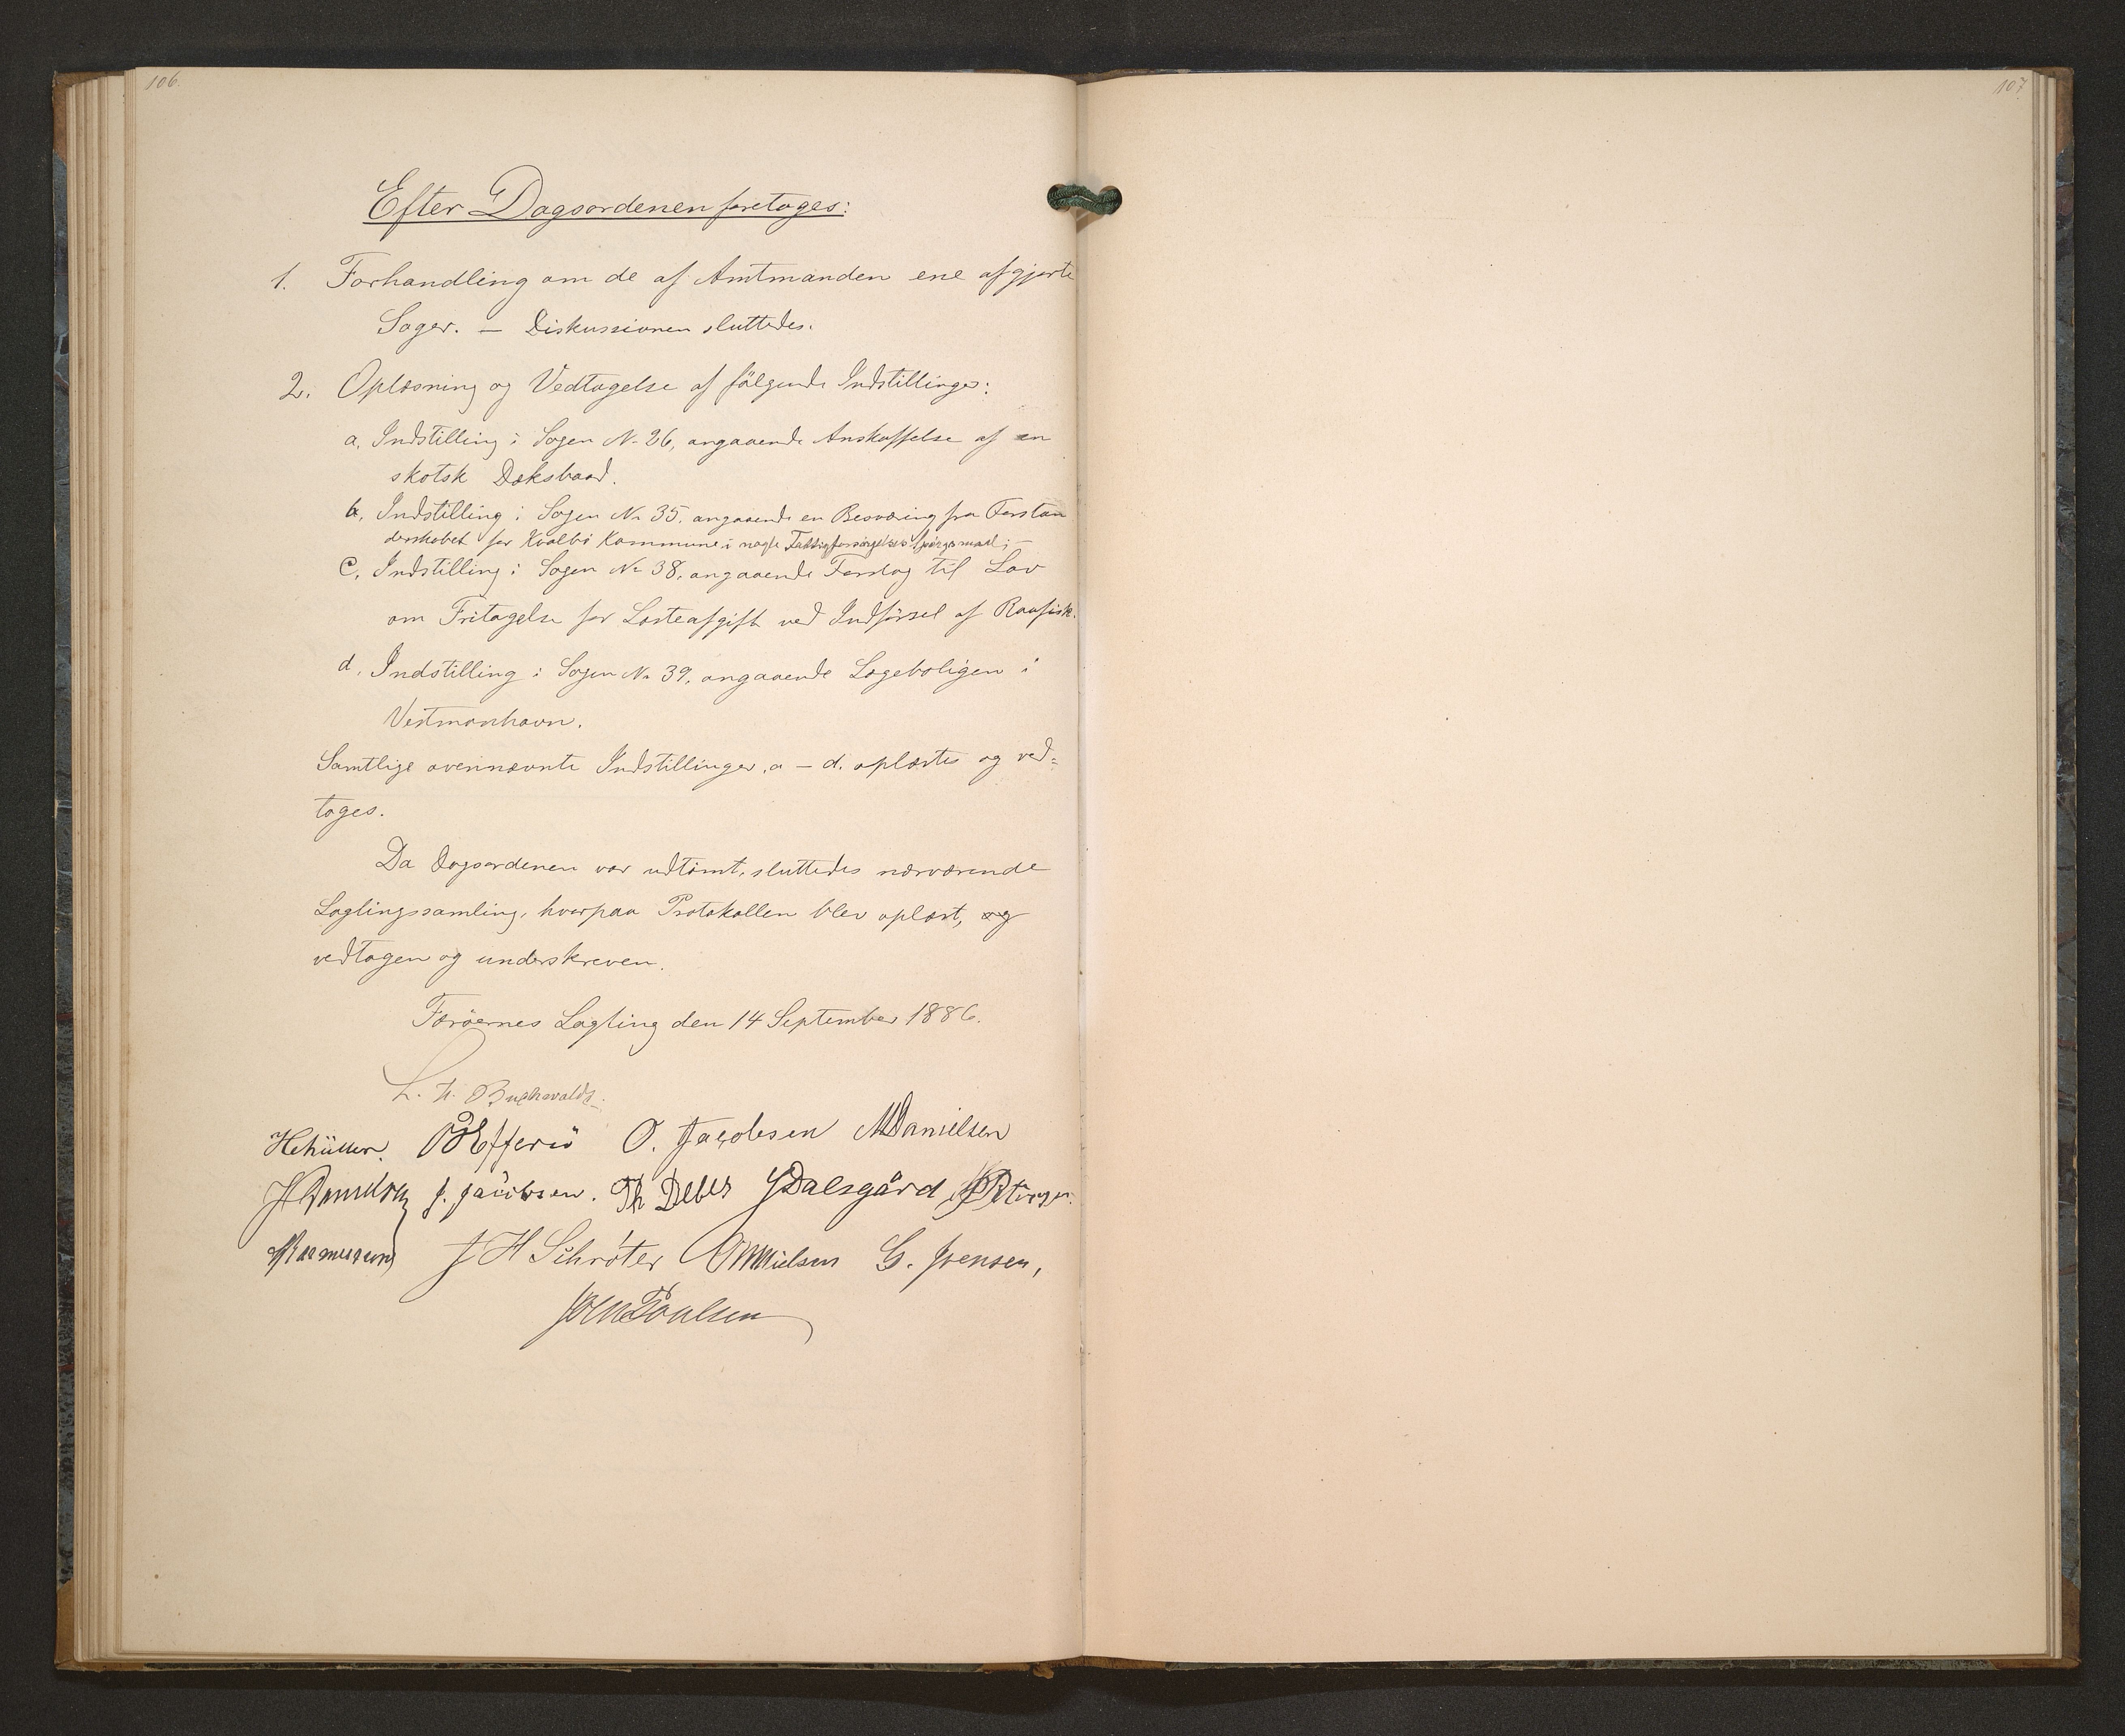 106.
107.
Efter Dagsordenen foretages:
1. Forhandling om de af Amtmanden ene afgjorte
Sager. — Diskussionen sluttedes.
2. Oplæsning og Vedtagelse af følgende Indstillinger:
a, Indstilling i Sagen No 26, angaaende Anskaffelse af en
skotsk Dæksbaad.
b, Indstilling i Sagen No 35, angaaende en Besværing fra Forstan
derskabet for Kvalbö Kommune i nogle Fattigforsørgelses Spørgsmaal; —
c, Indstilling i Sagen No 38, angaaende Forslag til Lov
om Fritagelse for Lasteafgift ved Indførsel af Raafisk.
d, Indstilling i Sagen No 39, angaaende Lægeboligen i
Vestmanhavn.
Samtlige ovennævnte Indstillinger, a – d, oplæstes og ved=
toges.
Da Dagsordenen var udtømt, sluttedes nærværende
Lagtingssamling, hvorpaa Protokollen blev oplæst, og
vedtagen og underskreven.
Færøernes Lagting den 14 September 1886.
L. H. Buchwaldt
H Müller. P Effersö O. Jacobsen M Danielsen
J Danielsen J. Jacobsen. Th Debes J Dalsgård J P Petersen.
Rasmussen J H Schröter Nielsen G. Joensen,
Poulsen